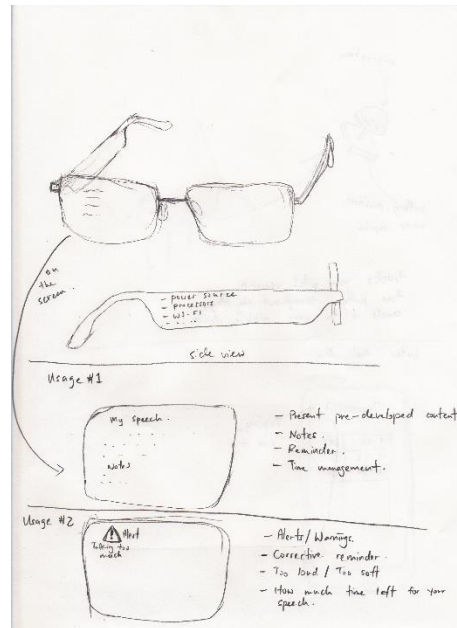 on
the
screen.
- power source
- processors
- Wi-Fi
side view
Usage #1
my speech.
Notes
- Present pre-developed content
- Notes.
- Reminder.
- Time management.
Usage #2
Alert
Talking too
much
- Alerts/Warnings.
- Corrective reminder.
- Too loud / Too soft
- How much time left for your
speech.